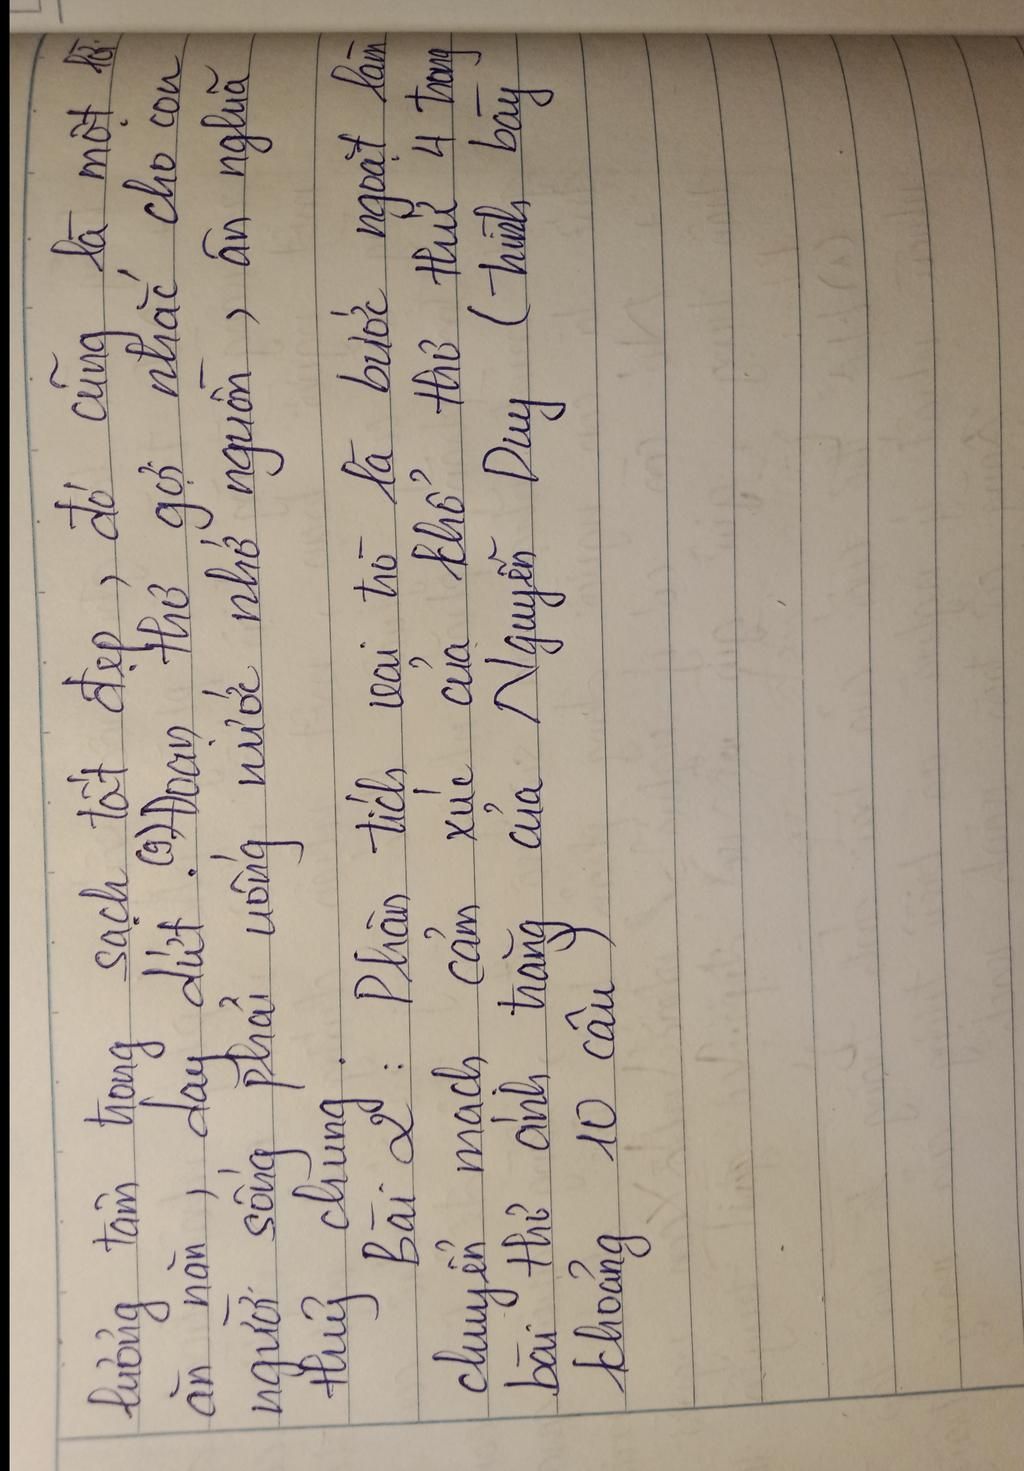 lương tâm trong sạch tốt đẹp, đó cũng là một lời
ăn năn, day dứt. (9) Đoạn thơ gợi nhắc cho con
người sống phải uống nước nhớ nguồn, ân nghĩa
thuỷ chung.
Bài 2: Phân tích vai trò là bước ngoặt làm
chuyển mạch cảm xúc của khổ thơ thứ 4 trong
bài thơ ánh trăng của Nguyễn Duy (trình bày
khoảng 10 câu)